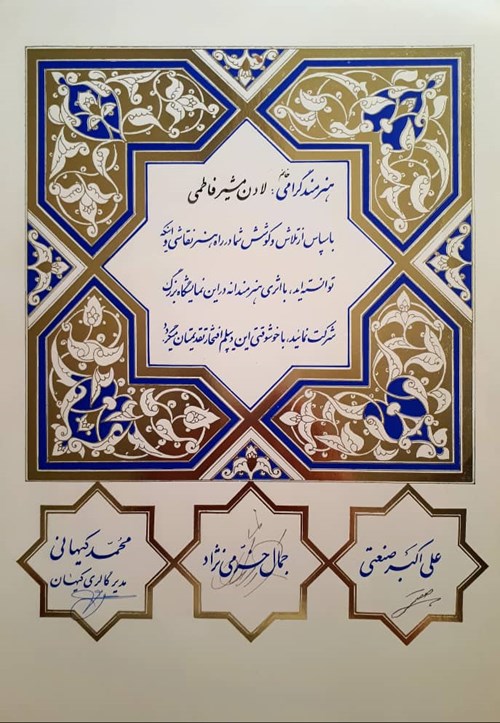 هنرمند گرامی خانم : لادن مشیر فاطمی
با سپاس از تلاش و کوشش شما در راه هنر نقاشی و اینکه
توانسته‌اید، با اثری هنرمندانه در این نمایشگاه بزرگ
شرکت نمائید، با خوشوقتی این دیپلم افتخار تقدیمتان میگردد
علی اکبر صنعتی
جمال خرمی نژاد
محمد کیهانی
مدیر گالری کیهان